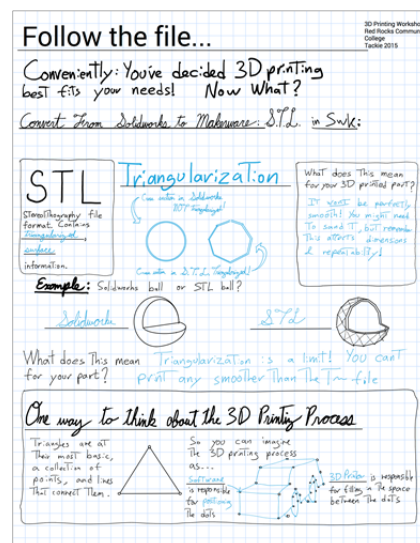 Follow the file...
3D Printing Worksho
Red Rocks Commun
College
Tackie 2015
Conveniently: You've decided 3D printing
best fits your needs! Now What?
Convert From Solidworks to Makerware: S.T.L. in Swk:
STL
Stereolithography file
format. Contains
Triangularized
surface
information.
Triangularization
Curve entire in Solidworks
NOT Triangularized!
Curve entire in S.T.L. Triangularized!
What does This mean
for your 3D printed part?
IT wont be perfectly
smooth! You might need
To sand IT, but remember
This affects dimensions
& repeatability!
Example: Solidworks ball or STL ball?
Solidworks
STL
What does This mean
for your part?
Triangularization is a limit! You can't
print any smoother Than The file
One way to think about the 3D Printing Process
Triangles are at
Their most basic,
a collection of
points, and lines
That connect Them.
So you can imagine
The 3D printing process
as...
Software
is responsible
for positioning
The dots
3D Printer is responsible
for filling in The space
between The dots